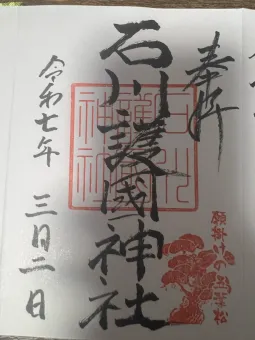 奉拝
石川護國神社
石川
護國
神社
願掛けの
令和七年 三月二日